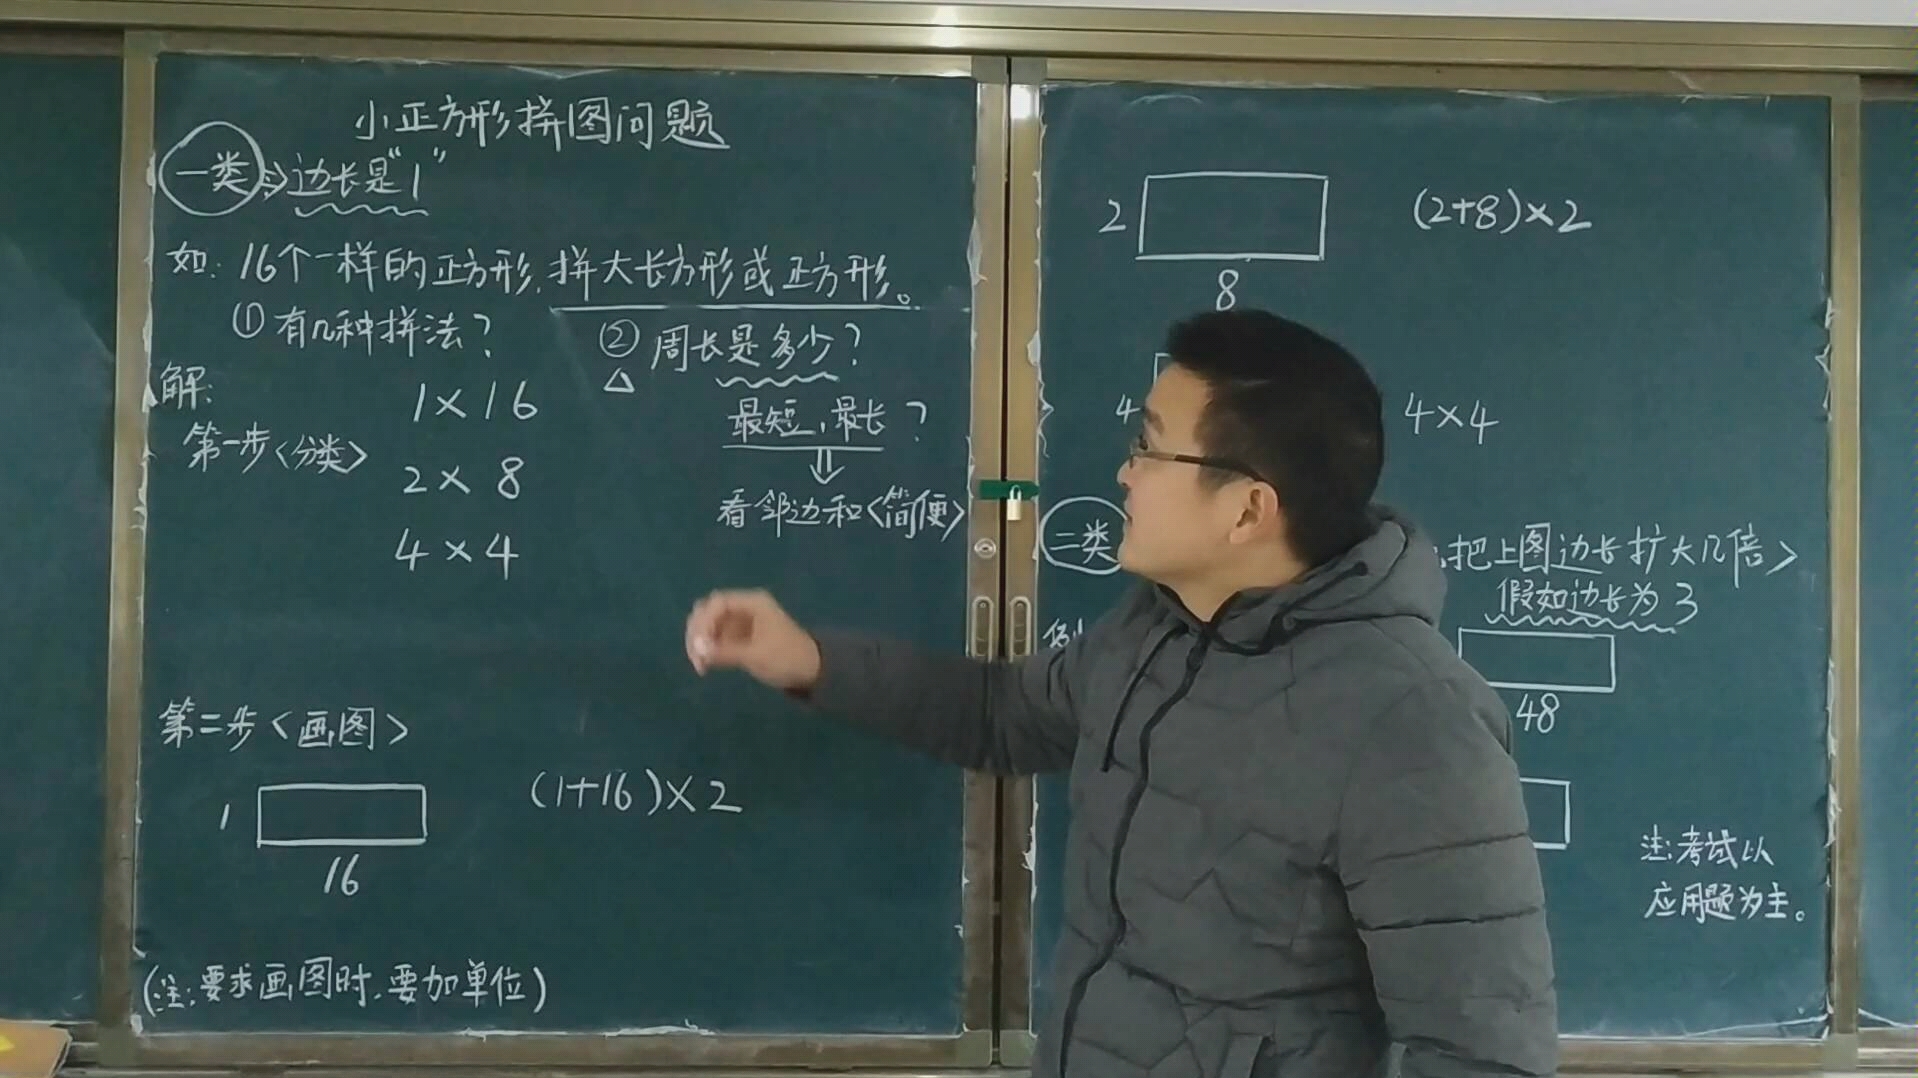 小正方形拼图问题
一类⇒边长是“1”
如：16个一样的正方形，拼大长方形或正方形。
①有几种拼法？ ②周长是多少？
△
最短，最长？
⇓
看邻边和〈简便〉
解：
第一步〈分类〉
1×16
2×8
4×4
第二步〈画图〉
1
16
(1+16)×2
(注：要求画图时，要加单位)
2
8
(2+8)×2
4
4×4
二类
把上图边长扩大几倍〉
假如边长为3
例
48
注：考试以
应用题为主。